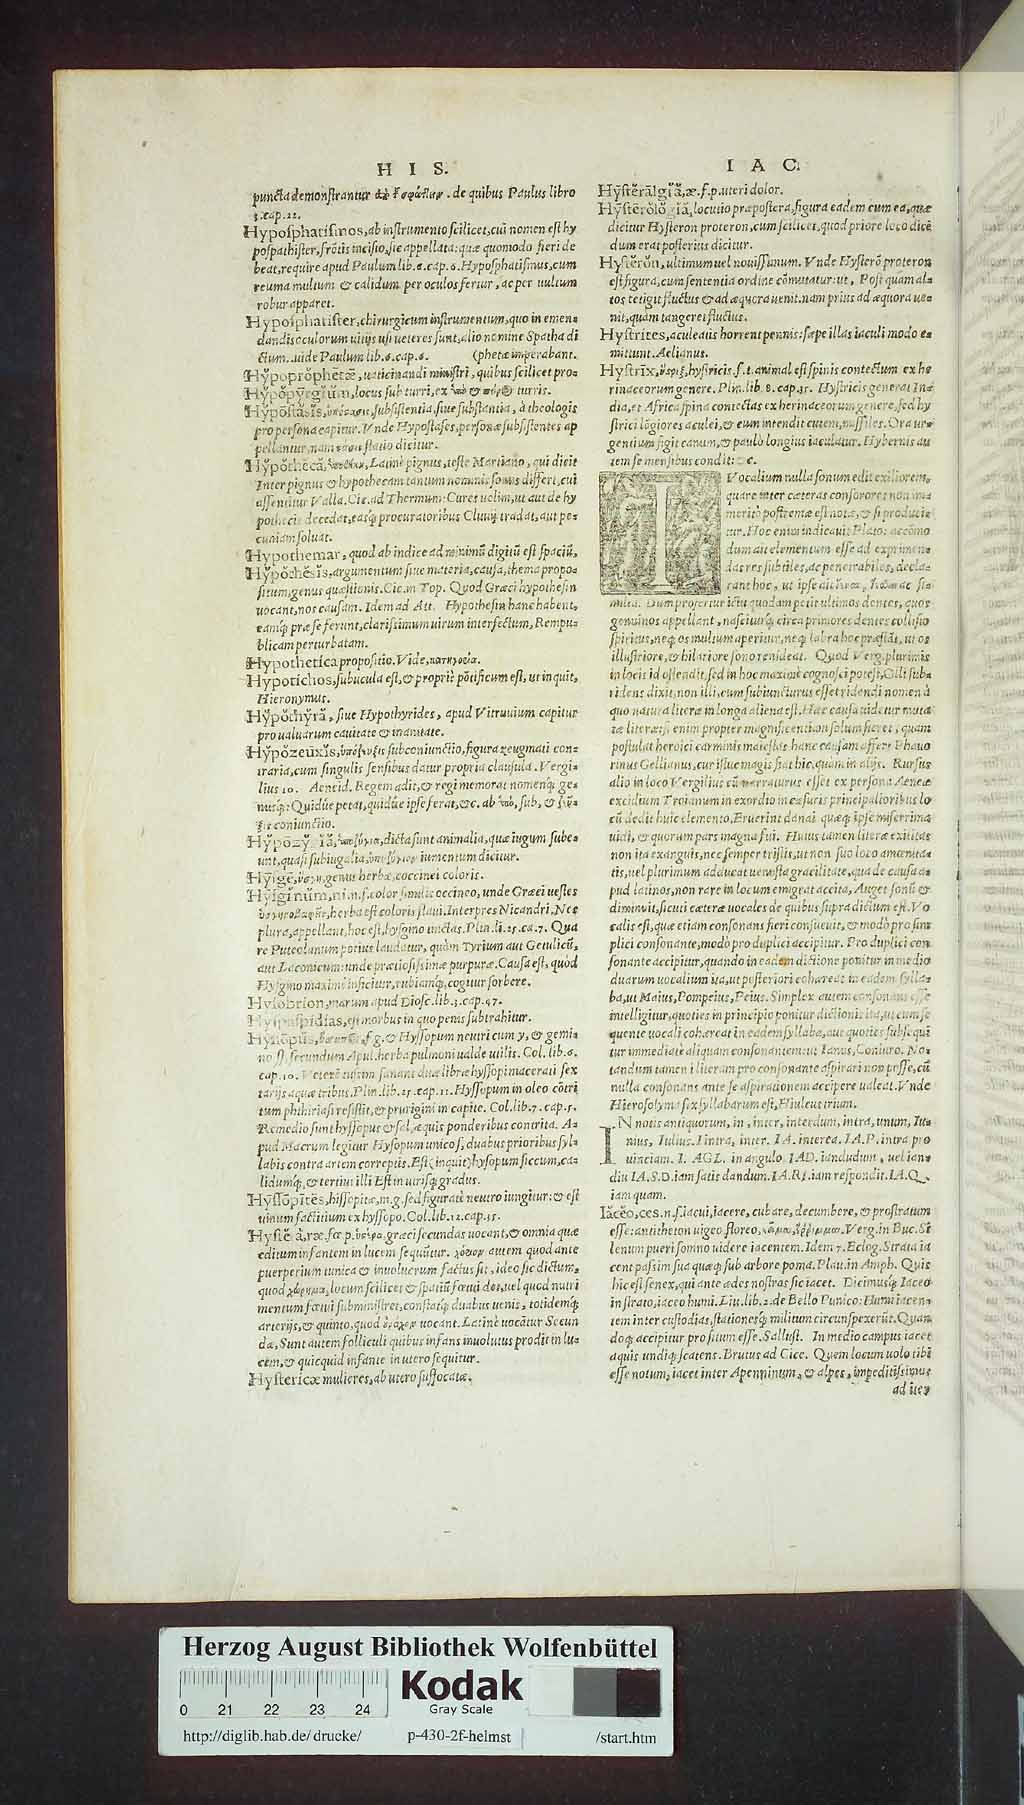 H I S.
puncta demonstrantur . de quibus Paulus libro
3. cap. 22.
Hyposphatismos, ab instrumento scilicet, cui nomen est hy
pospathister, frōtis incisio, sic appellata: quæ quomodo fieri de
beat, require apud Paulum lib. 6. cap. 6. Hyposphatismus, cum
reuma multum & calidum per oculos fertur, ac per uultum
robur apparet.
Hyposphatister, chirurgicum instrumentum, quo in emen=
dandis oculorum uitijs usi ueteres sunt, alio nomine Spatha di
ctum. uide Paulum lib. 6. cap. 6. (phetæ imperabant.
Hy̆pŏprŏphētæ, uaticinandi ministri, quibus scilicet pro=
Hy̆pŏpȳrgĭŭm, locus sub turri, ex ὑπὸ & turris.
Hy̆pŏstăsĭs, ὑπόστασις, subsistentia, siue substantia, à theologis
pro persona capitur. Vnde Hypostases, personæ subsistentes ap
pellantur, nam στάσις statio dicitur.
Hy̆pŏthēcă, ὑποθήκη, Latinè pignus, teste Martiano, qui dicit
Inter pignus & hypothecam tantum nominis sonus differt, cui
assentitur Valla. Cic. ad Thermum: Cures uelim, ut aut de hy
pothecis decedat, easq́; procuratoribus Cluuij tradat, aut pe=
cuniam soluat.
Hypothemar, quod ab indice ad minimū digitū est spaciū,
Hy̆pŏthĕsĭs, argumentum siue materia, causa, thema propo=
situm, genus quæstionis. Cic. in Top. Quod Græci hypothesin
uocant, nos causam. Idem ad Att. Hypothesin hanc habent,
eamq́; præ se ferunt, clarissimum uirum interfectum, Rempu=
blicam perturbatam.
Hypothetica propositio. Vide, κατηγορία.
Hypotichos, subucula est, & propriè pōtificum est, ut inquit,
Hieronymus.
Hy̆pŏthy̆ră, siue Hypothyrides, apud Vitruuium capitur
pro ualuarum cauitate & inanitate.
Hy̆pŏzeūxĭs, ὑπόζευξις subconiunctio, figura zeugmati con=
traria, cum singulis sensibus datur propria clausula. Vergi=
lius 10. Aeneid. Regem adit, & regi memorat nomenq́; ge=
nusq́;: Quidúe petat, quidúe ipse ferat, &c. ab ὑπὸ, sub, & ζεῦ=
ξις coniunctio.
Hy̆pŏzȳgĭă, ὑποζύγια, dicta sunt animalia, quæ iugum sube=
unt, quasi subiugalia, ὑποζύγιον iumentum dicitur.
Hȳsgē, ὕσγη, genus herbæ, coccinei coloris.
Hȳsgĭnŭm, ni. n. s. color similis coccineo, unde Græci uestes
herba est coloris flaui. Interpres Nicandri. Nec
plura, appellant, hoc est, hysgino tinctas. Plin. li. 35. ca. 7. Qua
re Puteolanum potius laudatur, quàm Tyrium aut Getulicū,
aut Laconicum: unde præciosissimæ purpuræ. Causa est, quòd
Hysgino maximè inficitur, rubiamq́;, cogitur sorbere.
Hylobrion, marum apud Diosc. lib. 3. cap. 47.
Hyspaspidias, est morbus in quo penis subtrahitur.
Hȳsōpŭs, f. g. & Hyssopum neutri cum y, & gemi=
no ss. secundum Apul. herba pulmoni ualde utilis. Col. lib. 6.
cap. 10. Veterē tussim sanant duæ libræ hyssopi macerati sex
tarijs aquæ tribus. Plin. lib. 25. cap. 11. Hyssopum in oleo cōtri
tum phthiriasi resistit, & prurigini in capite. Col. lib. 7. cap. 5.
Remedio sunt hyssopus & sal, æquis ponderibus contrita. A=
pud Macrum legitur Hysopum unico s, duabus prioribus syl=
labis contra artem correptis. Est (inquit) hysopum siccum, ca=
lidumq́;, & tertius illi Est in utrisq́; gradus.
Hȳssōpītēs, hissopitæ, m. g. sed figuratè neutro iungitur: & est
uinum factitium ex hyssopo. Col. lib. 12. cap. 35.
Hystĕră, ræ. fœ. p. ὑστέρα. græci secundas uocant, & omnia quæ
editum infantem in lucem sequūtur. χόριον autem quod ante
puerperium tunica & inuolucrum factus sit, ideo sic dictum,
quod χώρημα, locum scilicet & spatiū fœtui det, uel quod nutri
mentum fœtui subministret, constatq́; duabus uenis, totidemq́;
arterijs, & quinto, quod uocant. Latinè uocātur Secun
dæ, Sunt autem folliculi quibus infans inuolutus prodit in lu=
cem, & quicquid infante in utero sequitur.
Hystericæ mulieres, ab utero suffocatæ.
I A C.
Hȳstĕrālgĭă, æ. f. p. uteri dolor.
Hȳstĕrŏlŏgĭă, locutio præpostera, figura eadem cum ea, quæ
dicitur Hysteron proteron, cum scilicet, quod priore loco dicē
dum erat posterius dicitur.
Hȳstĕrŏn, ultimum uel nouissimum. Vnde Hysterō proteron
est figura, cum sententia ordine cōmutatur: ut, Postquam al=
tos tetigit fluctus & ad æquora uenit. nam prius ad æquora ue=
nit, quàm tangeret fluctus.
Hystrites, aculeatis horrent pennis: sæpe illas iaculi modo e=
mittunt. Aelianus.
Hȳstrīx, ὕστριξ, hystricis. f. t. animal est spinis contectum ex he
rinaceorum genere. Plin. lib. 8. cap. 35. Hystricis generat In=
dia, et Africa spina contectas ex herinaceorum genere, sed hy
strici lōgiores aculei, & cum intendit cutem, missiles. Ora ur=
gentium figit canum, & paulo longius iaculatur. Hybernis au
tem se mensibus condit: &c.
I Vocalium nulla sonum edit exiliorem,
quare inter cæteras consorores non im=
meritò postremæ est notæ, & si producìe
tur. Hoc enim indicauit Plato: accōmo
dum ait elementum esse ad exprimen=
das res subtiles, ac penetrabiles, decla=
rant hoc, ut ipse ait ac si=
milia. Dum profertur ictu quodam petit ultimos dentes, quos
genuinos appellant, nasciturq́; circa primores dentes collisio
spiritus, neq́; os multum aperitur, neq́; labra hoc præstāt, ut os
illustriore, & hilariore sono renideat. Quod Verg. plurimis
in locis id ostendit, sed in hoc maximè cognosci potest, Olli sub=
ridens dixit, non illi, cum subiuncturus esset ridendi nomen à
quo natura literæ in longa aliena est. Hac causa uidetur muta
ta literæ, si enim propter magnificentiam solum fieret, quam
postulat heroici carminis maiestas hanc causam affert Phauo
rinus Gellianus, cur istuc magis fiat hîc, quàm in alijs. Rursus
alio in loco Vergilius cū narraturus esset ex persona Aeneæ
excidium Troianum in exordio in cæsuris principalioribus lo
cū dedit huic elemento, Eruerint danai quæq́; ipse miserrima
uidi, & quorum pars magna fui. Huius tamen literæ exilitas
non ita exanguis, nec semper tristis, ut non suo loco amœnita=
tis, uel plurimum adducat uenusta gracilitate, qua de causa a=
pud latinos, non rarè in locum emigrat accita, Auget sonū &
diminuit, sicuti cæteræ uocales de quibus supra dictum est. Vo
calis est, quæ etiam consonans fieri consueuit, & modò pro sim
plici consonante, modò pro duplici accipitur. Pro duplici con
sonante accipitur, quando in eadem dictione ponitur in medio
duarum uocalium ita, ut posteriori cohæreat in eadem sylla=
ba, ut Maius, Pompeius, Peius. Simplex autem consonans esse
intelligitur, quoties in principio ponitur dictionis ita, ut cum se
quente uocali cohæreat in eadem syllaba, aut quoties subsequi
tur immediatè aliquam consonantem: ut Ianus, Coniuro. No=
tandum tamen i literam pro consonante aspirari non posse, cū
nulla consonans ante se aspirationem accipere ualeat. Vnde
Hierosolyma sex syllabarum est, Hiuleus trium.
IN notis antiquorum, in, inter, interdum, intra, unum, Iu=
nius, Iulius. I intra, inter. IA. interea. IA. P. intra pro
uinciam. I. AGL. in angulo. IAD. iandudum, uel iam=
diu IA. S. D. iam satis dandum. IA. RI. iam respondit. IA. Q.
iam quam.
Iăcĕo, ces. n. s. iacui, iacere, cubare, decumbere, & prostratum
esse: antitheton uigeo floreo, . Verg. in Buc. Si
lenum pueri somno uidere iacentem. Idem 7. Eclog. Strata ia
cent passim sua quæq́; sub arbore poma. Plau. in Amph. Quis
hic est senex, qui ante ædes nostras sic iacet. Dicimusq́; Iaceo
in strato, iaceo humi. Liu. lib. 2. de Bello Punico: Humi iacen=
tem inter custodias, stationesq́; militum circunspexerūt. Quan
doq́; accipitur pro situm esse. Sallust. In medio campus iacet
aquis undiq́; scatens. Brutus ad Cice. Quem locum uolo tibi
esse notum, iacet inter Apenninum, & alpes, impeditissimus
ad iter
Herzog August Bibliothek Wolfenbüttel
Kodak
Gray Scale
0 21 22 23 24
http://diglib.hab.de/drucke/ p-430-2f-helmst /start.htm